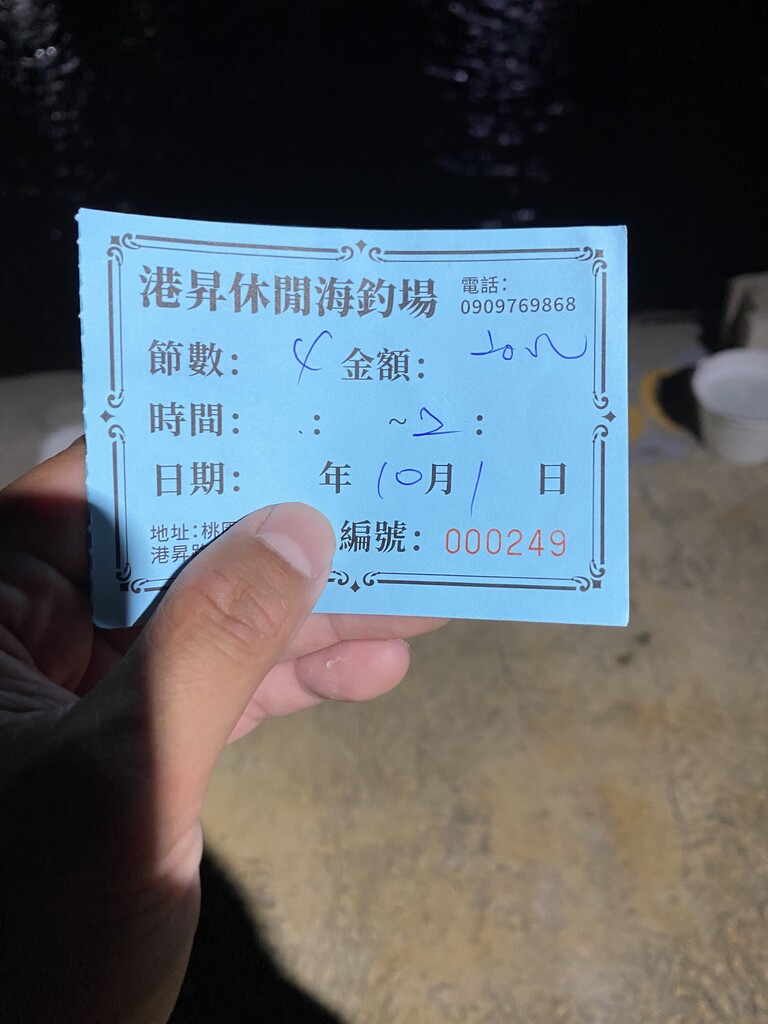 港昇休閒海釣場 電話：0909769868
節數： 4 金額：
時間： ： ~2 ：
日期： 年 10月 1 日
地址：桃 編號：000249
港昇